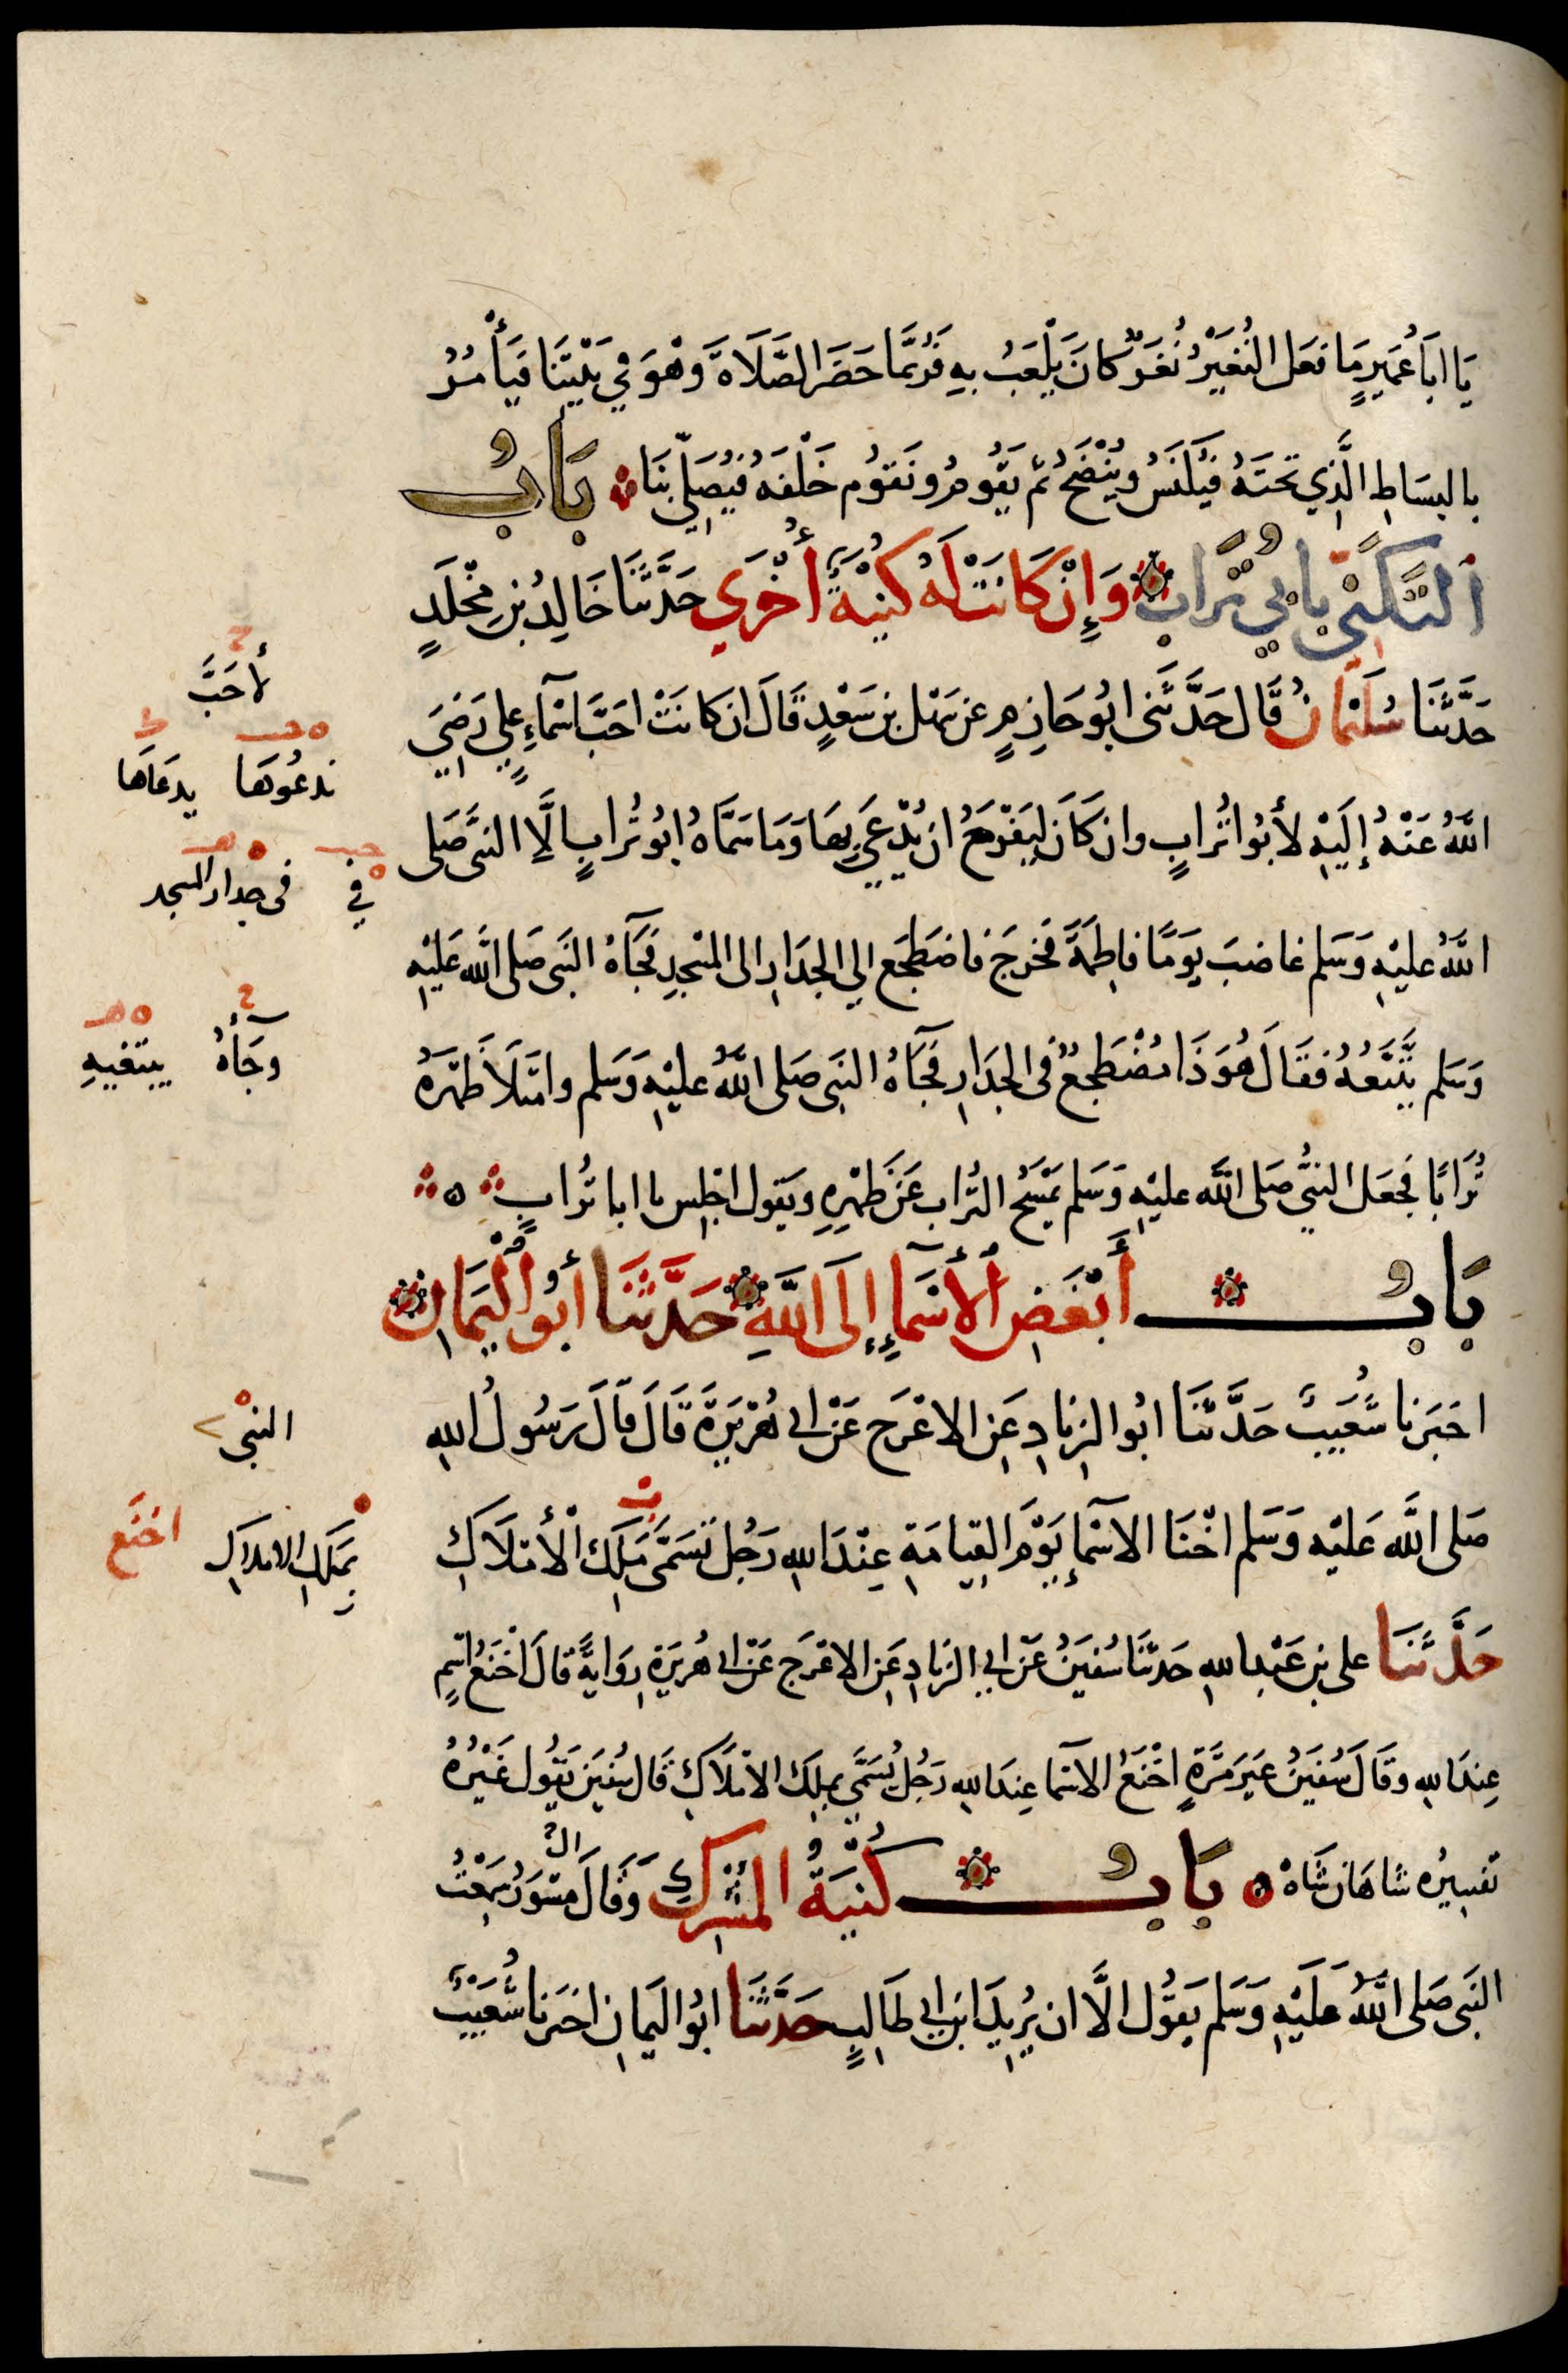 يَا ابَا عُمَيرٍ مَا فعَل النُغَيْرُ نُغَرٌ كانَ يَلْعَبُ بِهِ فَرُبَّمَا حَضَرَ الصَّلَاةَ وَهْوَ فِي بَيْتِنَا فَيَأْمُرُ
بالبِسَاطِ الَّذِي تَحتَهُ فيُكْنَسُ ويُنْضَحُ ثم يَقُومُ ونَقوُم خَلْفَهُ فيُصَلِّي بِنَا بَابُ
التَّكَنِّي بِابِي تُرَابٍ وَإِنْ كَانَتْ لَهُ كُنْيَةٌ أُخْرَي حَدَّثَنَا خَالِدُ بن مَخْلَدٍ
حَدَّثَنَا سُلَيْمَانُ قَال حَدَّثَنِي ابُو حَازِمٍ عن سَهْل بن سَعْدٍ قَالَ ان كانَتْ احَبَّ اسْمَاءِ علِيٍ رَضِيَ
اللَّهُ عَنْهُ إِلَيْهِ لأبُوا تُرابٍ وان كَانَ ليَفْرَحُ ان يُدْعَي بِهَا وَمَا سَمَّاهُ ابُو تُرابٍ الَّا النبي صَلى
اللَّهُ عليْهِ وَسَلم غاضبَ يَوَمًا فاطِمَةَ فخرَجَ فاضطَجَع الي الجدَارِ الى المسْجدِ فجَاهُ النبَي صَلى اللَّه عَليْهِ
وَسَلم يَتَّبَعُهُ فقَالَ هُوَ ذَا مُضْطَجعٌ فى الجدَارِ فجَاهُ النبَي صَلى اللَّهُ عليْهِ وَسَلم وامتَلَأَ ظهْرَهُ
تُرَابًا فجعَل النبيُّ صَلى اللَّه عليْهِ وَسَلم يَمْسَحُ التُرابَ عَنْ ظهْرِهِ ويَقول اجْلِس يا ابا تُرابٍ ه
بَابُ أَبْغَضِ الأَسْمَاءِ إِلَى اللَّهِ حَدَّثَنَا أَبُو الْيَمَانِ
اخبَرنا شُعَيبٌ حَدَّثَنَا ابُو الزنادِ عَنِ الاعْرَج عَنْ ابى هُرَيْرَةَ قَالَ قالَ رَسُولُ اللهِ
صَلى اللَّه عَليْه وَسَلم اخْنَا الاسْمَاءِ يَوْمَ القِيامَةِ عِنْدَ اللهِ رَجُل تسَمَّى مَلِكَ الْأَمْلَاكِ
حَدَّثَنَا على بن عَبْدِ اللهِ حَدثنَا سُفيَنُ عَنْ ابي الزنادِ عَنِ الاعْرَج عَنْ ابى هُريَرَةَ رِوَايةً قالَ اخْنَعُ اسْمٍ
عِندَ اللهِ وقَالَ سُفيَنُ غيَر مَرَّةٍ اخْنَعُ الاسمَا عِندَ اللهِ رَجُل يُسَمَّي بملِكِ الامْلاَكِ قَال سُفيَن يَقُول غَيْرُهُ
تفسِيرُه شاهَان شَاهْ ه بَابُ كُنْيَةُ المُشْرِكِ وَقَالَ مِسْوَرٌ سَمِعْتُ
النبَي صَلى اللَّهُ عَلَيْهِ وَسَلم يَقُول الَّا ان يُرِيدَ ابن ابي طَالِبٍ حَدَّثَنَا ابُو اليَمانِ اخبَرنا شُعَيْبٌ
لأحَبَّ
ندعُوهَا يدعَاهَا
في فى جدار المسجد
وجَاهُ يبتغيهِ
النبي
بمَلِكِ الاملاكِ اخنَع